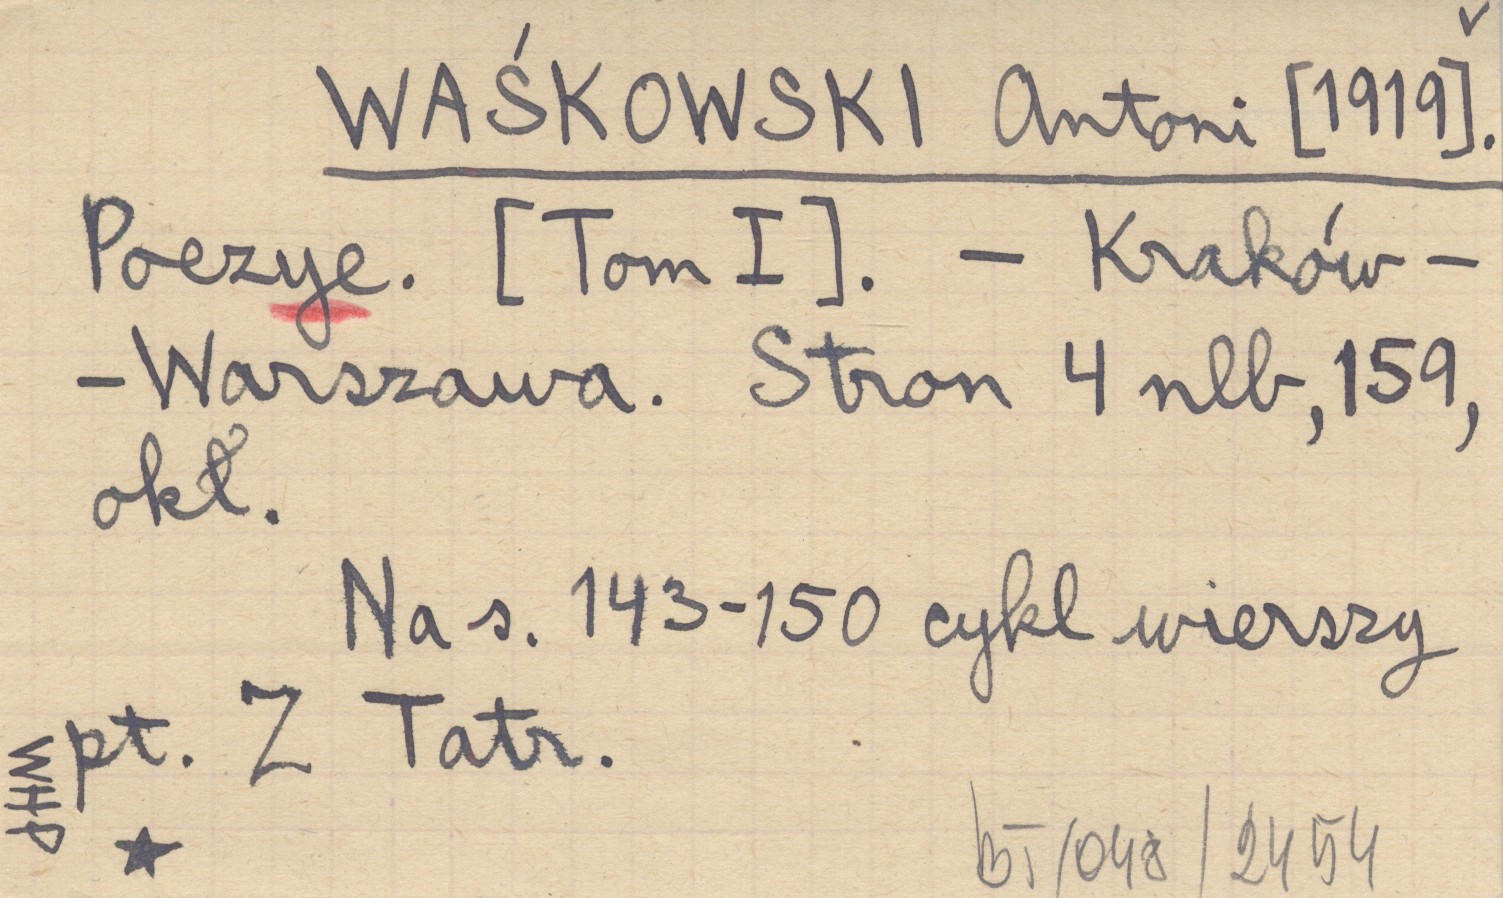 WAŚKOWSKI Antoni [1919].
Poezye. [Tom I]. - Kraków-
-Warszawa. Stron 4 nlb, 159,
okł.
Na s. 143-150 cykl wierszy
pt. Z Tatr.
WHP
/048/2454